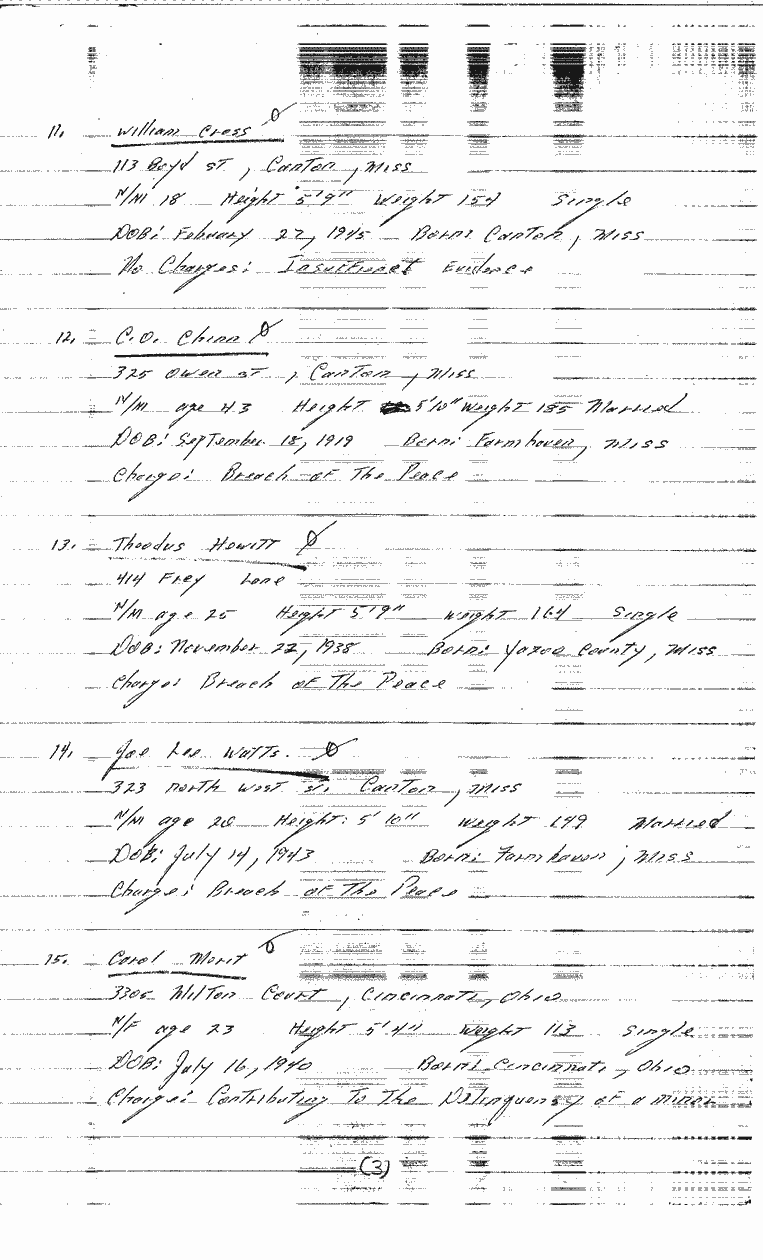 11. William Cress
113 Boyd st, Canton, Miss
N/M 18 Height 5'9" Weight 154 Single
DOB: Febuary 22, 1945 Born: Canton, Miss
No Charges: Insufficient Evidence
12. C.O. Chinn
325 Owen st, Canton, Miss
N/M age 43 Height 5'10" Weight 185 Married
DOB: September 18, 1919 Born: Farmhaven, Miss
Charge: Breach of The Peace
13. Theodus Hewitt
414 Frey Lane
N/M age 25 Height 5'9" weight 164 Single
DOB: November 22, 1938 Born: Yazoo County, Miss
Charge: Breach of The Peace
14. Joe Lee Watts.
323 north west st. Canton, Miss
N/M age 20 Height: 5'10" weight 149 Married
DOB: July 14, 1943 Born: Farmhaven, Miss
Charge: Breach of The Peace
15. Carol Merit
3305 Milton Court, Cincinnati, Ohio
N/F age 23 Height 5'4" weight 113 Single
DOB: July 16, 1940 Born: Cincinnati, Ohio
Charge: Contributing To The Delinquensy of a miner
(3)